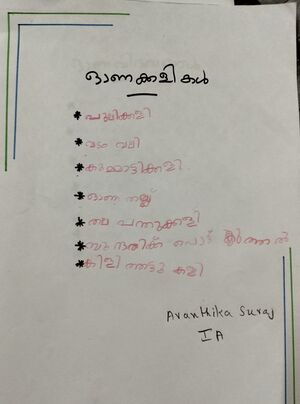 ഓണക്കളികൾ
* പുലിക്കളി
* വടം വലി
* കുമ്മാട്ടിക്കളി
* ഓണ തല്ല്
* തല പന്തുകളി
* സുന്ദരിക്ക് പൊട്ട് കുത്തൽ
* കിളിത്തട്ടു കളി
Avanthika Suraj
I A